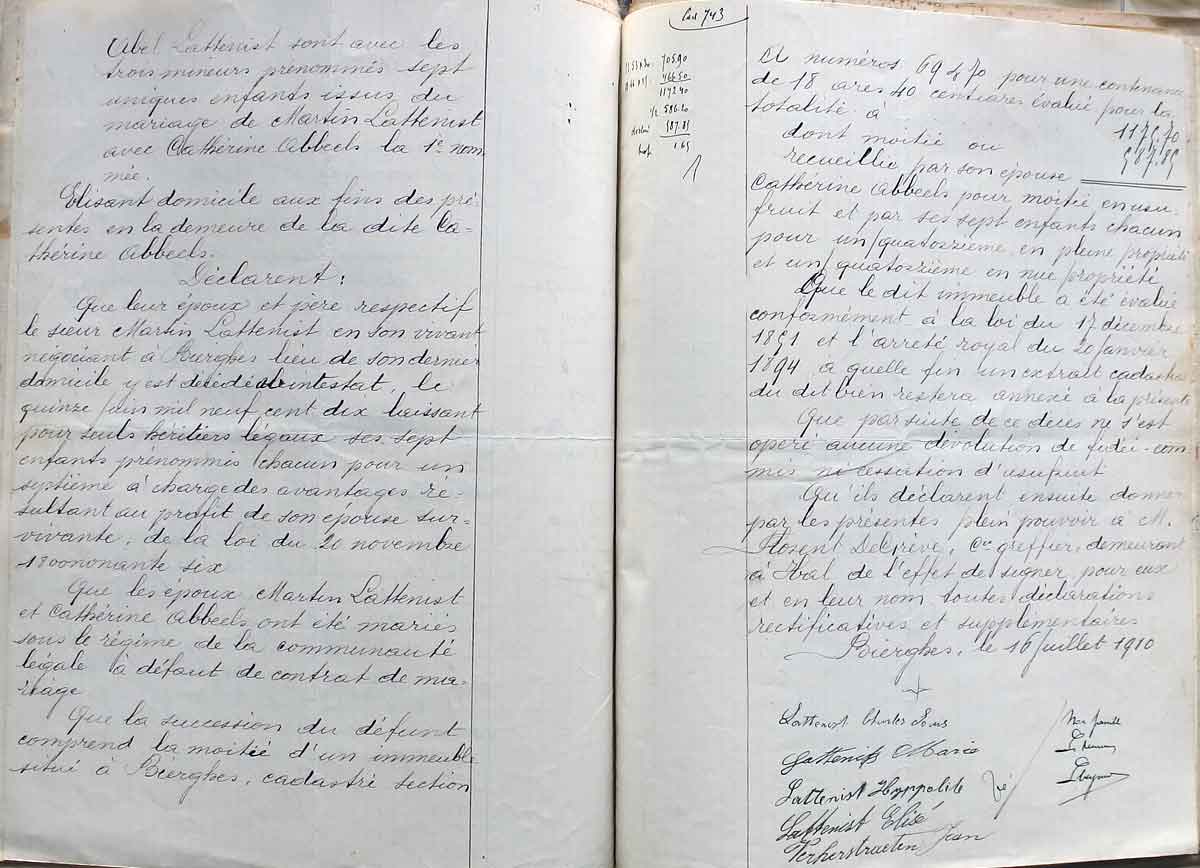 Abel Lattenist sont avec les
trois mineurs prénommés sept
uniques enfants issus du
mariage de Martin Lattenist
avec Cathérine Abbeels la 1e nom
mée.
Elisant domicile aux fins des pré-
sentes en la demeure de la dite Ca-
thérine Abbeels.
Déclarent:
Que leur époux et père respectif
le sieur Martin Lattenist en son vivant
négociant à Bierghes lieu de son dernier
domicile y est décédé abintestat, le
quinze juin mil neuf cent dix laissant
pour seuls héritiers légaux ses sept
enfants prénommés chacun pour un
septième à charge des avantages ré-
sultant au profit de son épouse sur-
vivante, de la loi du 20 novembre
1800 nonante six
Que les époux Martin Lattenist
et Cathérine Abbeels ont été mariés
sous le régime de la communauté
légale à défaut de contrat de ma-
riage
Que la succession du défunt
comprend la moitié d'un immeuble
situé à Bierghes, cadastré section
743
705.90
466.50
1172.40
1/2 586.20
587.85
1.65
A numéros 69 & 70 pour une contenance
de 18 ares 40 centiares évalué pour la
totalité à 1175.70
dont moitié ou 587.85
recueillie par son épouse
Cathérine Abbeels pour moitié en usu-
fruit et par ses sept enfants chacun
pour un/quatorzième en pleine propriété
et un/quatorzième en nue propriété
Que le dit immeuble a été évalué
conformément à la loi du 17 décembre
1851 et l'arrêté royal du 20 janvier
1894 a quelle fin un extrait cadastral
du dit bien restera annexé à la présente
Que par suite de ce décès ne s'est
opéré aucune dévolution de fidéi-com-
mis ni cessation d'usufruit
Qu'ils déclarent ensuite donner
par les présentes plein pouvoir à M.
Florent DeGrève, Cis greffier, demeurant
à Hal de l'effet de signer pour eux
et en leur nom toutes déclarations
rectificatives et supplémentaires
Bierghes, le 16 juillet 1910
Lattenist Charles Louis
Lattenist Maria
Lattenist Hyppolite
Lattenist Elisé
Verherstraeten Jean